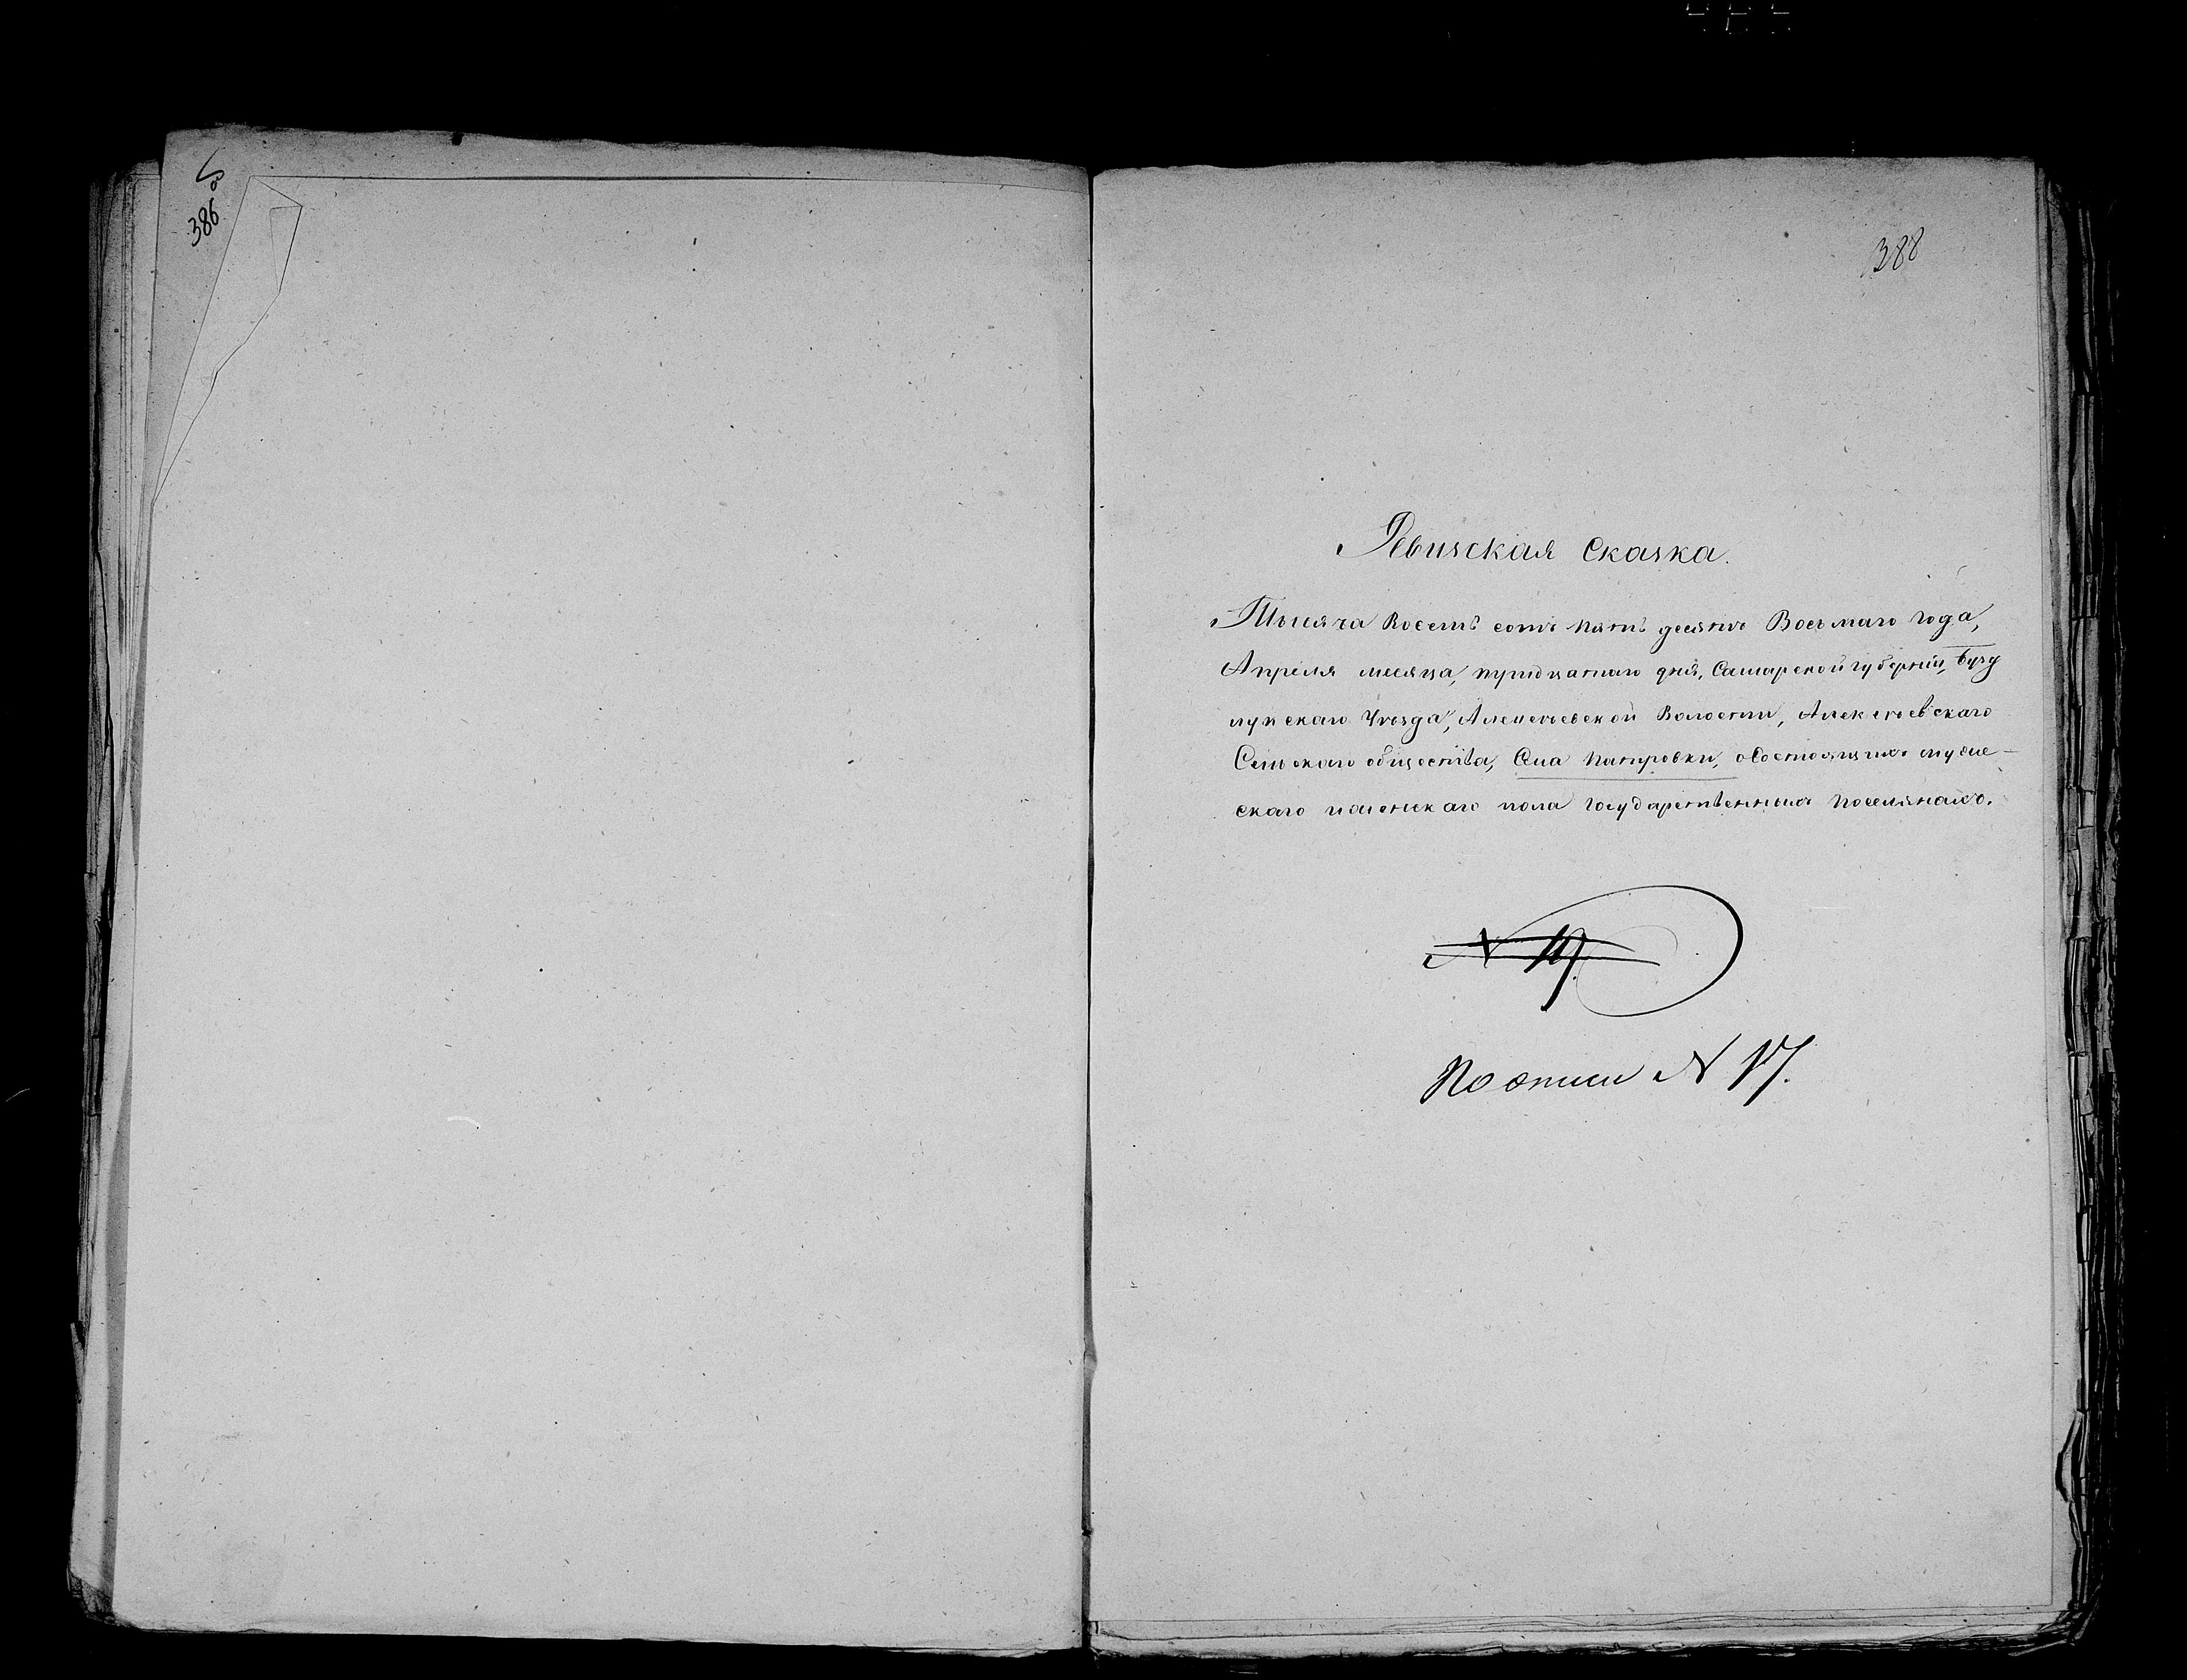 386 об
388
Ревизская Сказка.
Тысяча Восемь сотъ пять десятъ Восьмаго года,
Апреля месяца, тридцатаго дня, Самарской губерніи, Бузу
лукскаго Уѣзда, Алексѣевской Волости, Алексѣевскаго
Сельскаго общества, Села Патровки, о Состоящихъ мужес-
скаго и женскаго пола государственныхъ поселянахъ.
По описи N 17.